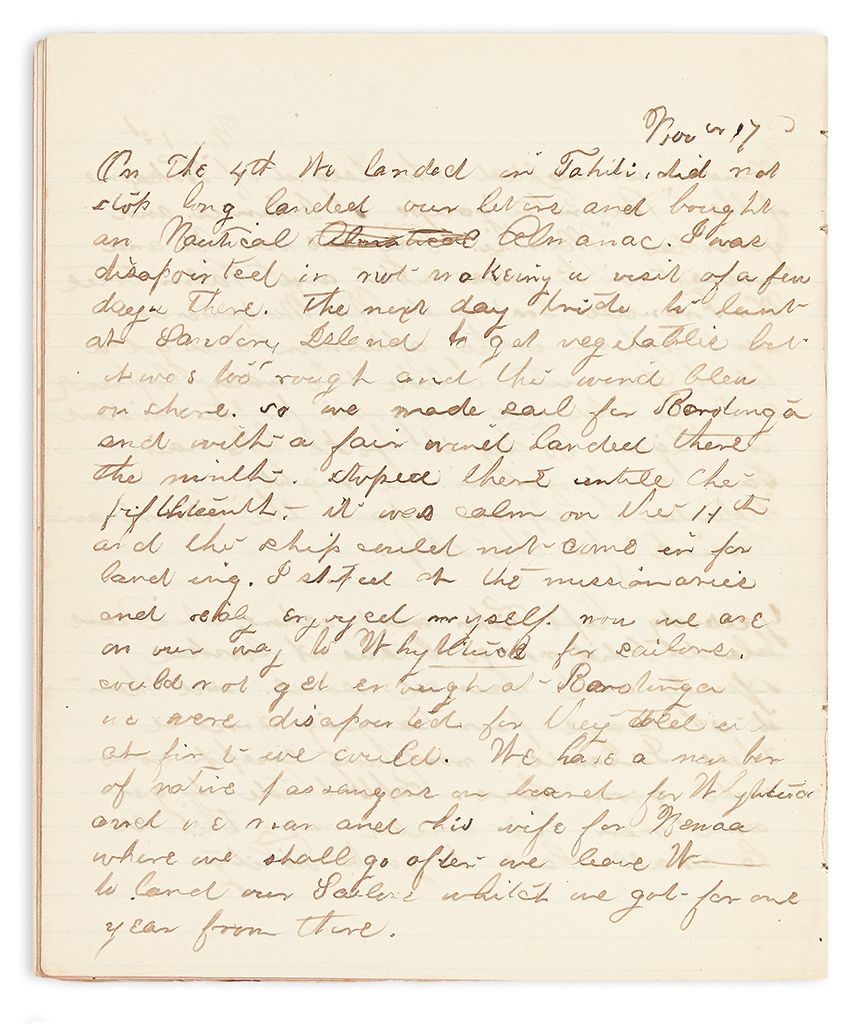 Nov 17
On the 4th We landed in Tahiti, did not
stop long landed our leters and bought
an Nautical Almatical Almanac. I was
disapointed in not makeing a visit of a few
days There. The next day tride to land
at Sandery Island to get vegetables but
it was too rough and the wind blew
on shore. so we made sail for Rarotonga
and with a fair wind landed there
the ninth. stoped there untill the
fifthteenth. it was calm on the 14th
and the ship could not come in for
landing. I stoped at the missionaries
and enjoyed myself. now we are
on our way to Whytituck for sailors.
could not get enough at Rarotonga
we were disapointed for they told us
at first we could. We have a number
of native passangers on board for Whytituck
and one man and his wife for
where we shall go after we leave W—
to land our Sailors whitch we got for one
year from there.